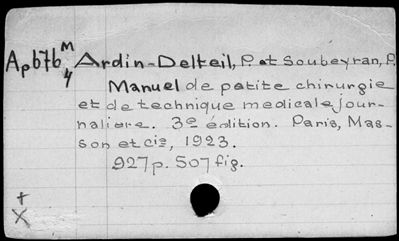 Apb7b M 4 Ardin-Delteil, P. et Soubeyran, P.
Manuel de petite chirurgie
et de technique medicale jour-
naliere. 3e édition. Paris, Mas-
son et cie, 1923.
927p. 507 fig.
+
X